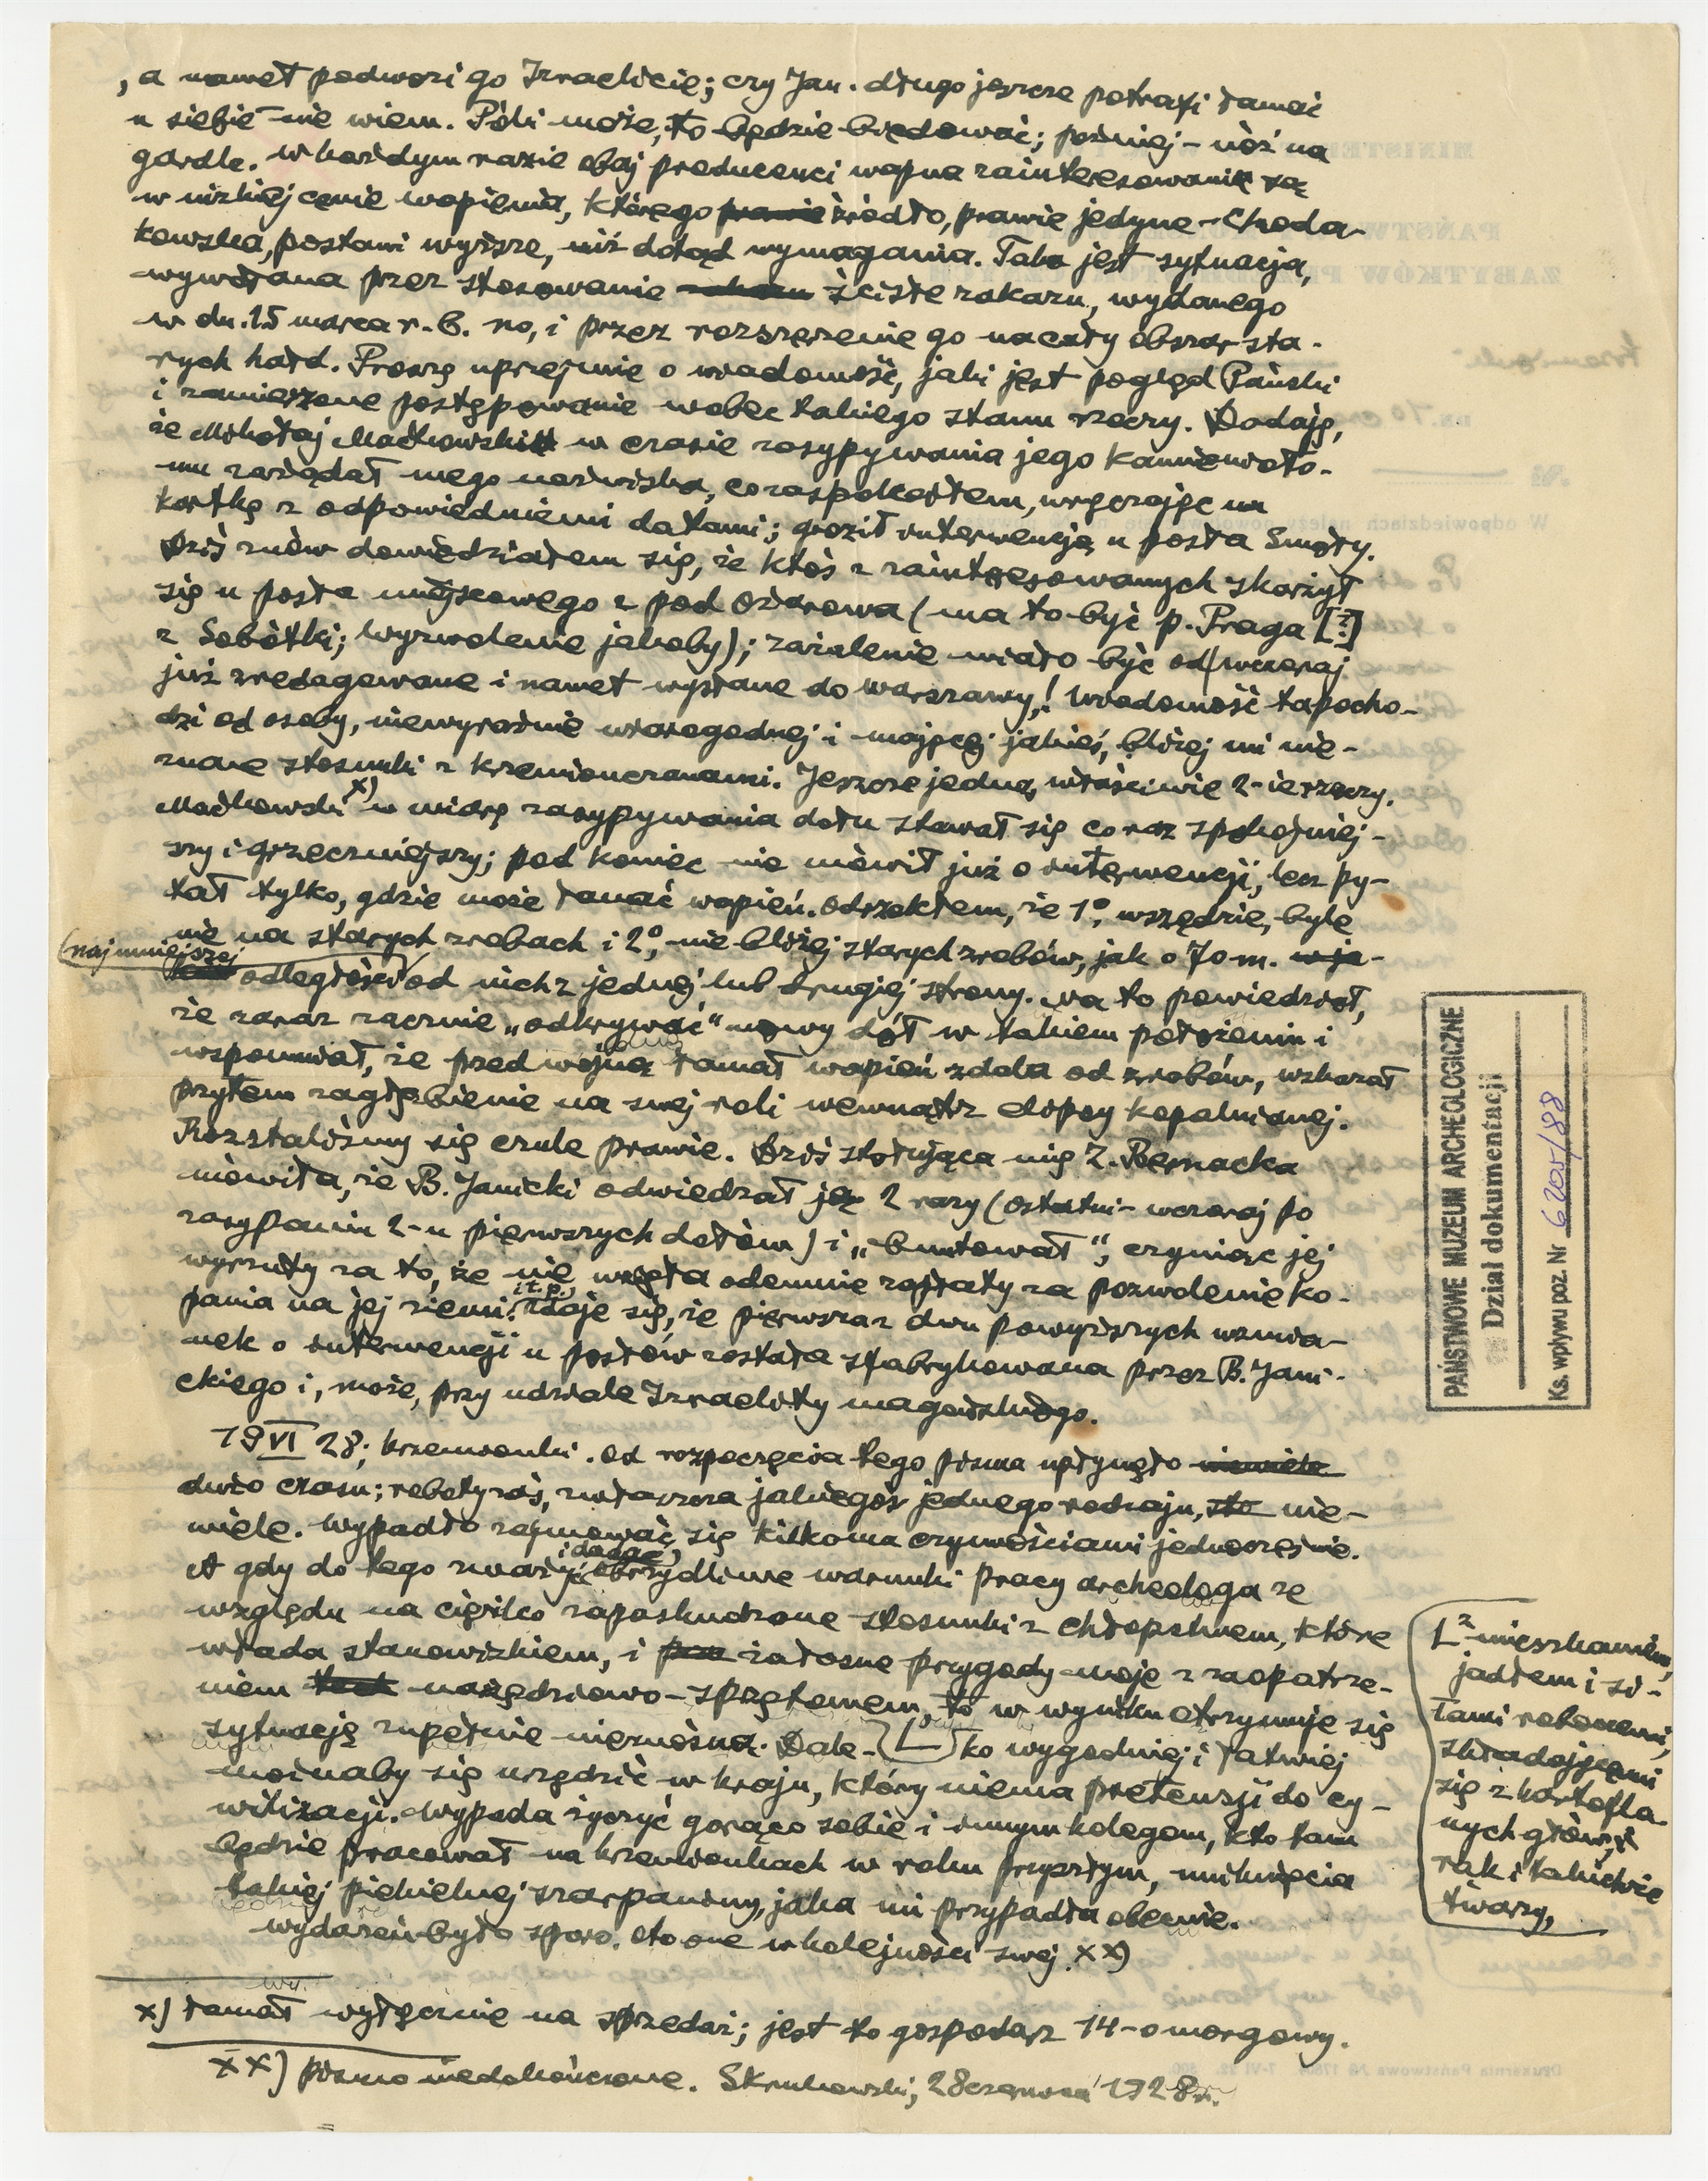 , a nawet podwozi go Izraelicie; czy Jan. długo jeszcze potrafi łamać
u siebie nie wiem. Póki może, to będzie będować; później – nóż na
gardle. W każdym razie obaj producenci wapna zainteresowani są
w nizkiej cenie wapienia, którego prawie źródło, prawie jedyne – Choda-
kowska, postawi wyższe, niż dotąd wymagania. Taka jest sytuacja,
wywołana przez stosowanie ściste zakazu, wydanego
w dn. 15 marca r. b. no, i przez rozszerzenie go na cały obszar sta-
rych hałd. Proszę uprzejmie o wiadomość, jaki jest pogląd Pański
i zamierzone postępowanie wobec takiego stanu rzeczy. Dodaję,
że Mikołaj Maćkowski w czasie zasypywania jego kamienioło-
mu zażądał mego nazwiska, co zaspokoiłem, wręczając mu
kartkę z odpowiedniemi datami; groził interwencją u posła Smoły.
Dziś znów dowiedziałem się, że ktoś z zainteresowanych skarżył
się u posła miejscowego z pod Ożarowa (ma to być p. Praga [?]
z Sobótki; Wyzwolenie jakoby); zażalenie miało być od wczoraj
już zredagowane i nawet wysłane do Warszawy! Wiadomość ta pocho-
dzi od osoby, niewyraźnie wiarogodnej i mającej jakieś, bliżej mi nie-
znane stosunki z krzemionczanami. Jeszcze jedna, właściwie 2-ie rzeczy.
Maćkowski x) w miarę zasypywania dołu stawał się coraz spokojniej-
szy i grzeczniejszy; pod koniec nie mówił już o interwencji, lecz py-
tał tylko, gdzie może łamać wapień. Odrzekłem, że 1º, wszędzie, byle
nie na starych zrobach i 2º, nie bliżej starych zrobów, jak o 70 m. w ja-
(najmniejszej)
odległości od nich z jednej lub drugiej strony. Na to powiedział,
że zaraz zacznie „odkrywać" nowy dół w takiem położeniu i
wspomniał, że przed wojną łamał wapień zdala od zrobów, wskazał
przytem zagłębienie na swej roli wewnątrz elipsy kopalnianej.
Rozstaliśmy się czule prawie. Dziś stołująca mię Z. Bernacka
mówiła, że B. Janicki odwiedzał ją 2 razy (ostatni – wczoraj po
zasypaniu 2-u pierwszych dołów) i „buntował", czyniąc jej
wyrzuty za to, że nie wzięła odemnie zapłaty za pozwolenie ko-
pania na jej ziemi i t. p. Zdaje się, że pierwsza z dwu powyższych wzmia-
nek o interwencji u posłów została sfabrykowana przez B. Jani-
ckiego i, może, przy udziale Izraelity magońskiego.
19 VI 28; Krzemionki. Od rozpoczęcia tego pisma upłynęło niewiele
dużo czasu; roboty zaś, zwłaszcza jakiegoś jednego rodzaju, nie-
wiele. Wypadło zajmować się kilkoma czynnościami jednocześnie.
A gdy do tego zważyć i dodać obrzydliwe warunki pracy archeologa ze
względu na ciężko zapaskudzone stosunki z chłopstwem, które
włada stanowizkiem, i żałosne przygody moje z zaopatrze-
niem narzędziowo-sprzętowem, to w wyniku otrzymuje się
sytuację zupełnie nieznośną. Dale- ko wygodniej i łatwiej
możnaby się urządzić w kraju, który niema pretensji do cy-
wilizacji. Wypada życzyć gorąco sobie i innym kolegom, kto tam
będzie pracował na Krzemionkach w roku przyszłym, uniknięcia
takiej piekielnej szarpaniny, jaka mi przypadła obecnie.
Wydarzeń było sporo. Oto one w kolejności swej. xx)
z mieszkaniem,
jadłem i si-
łami roboczemi,
składającemi
się z kartofla-
nych głów,
rąk i takichże
twarzy,
x) łamał wyłącznie na sprzedaż; jest to gospodarz 14-o morgowy.
xx) pismo niedokończone. S. Krukowski, 28 czerwca 1928 r.
PAŃSTWOWE MUZEUM ARCHEOLOGICZNE
Dział dokumentacji
Ks. wpływu poz. Nr 6205/88